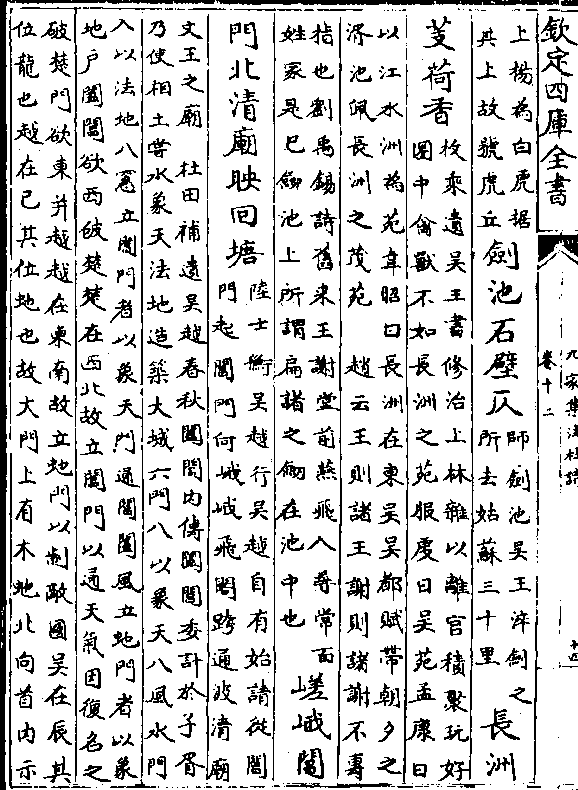 欽定四庫全書
九家集注杜詩
卷十二
十四
上楊為白虎據
其上故號虎丘
劍池石壁仄
師劍池吳王淬劍之
所去姑蘇三十里
長洲
芰荷香
枚乘遺吳王書修治上林雜以離宮積聚玩好
圈守禽獸不如長洲之苑服虔曰吳苑孟康曰
以江水洲為苑韋昭曰長洲在東吳吳都賦帶朝夕之
濬池佩長洲之茂苑　趙云王則諸王謝則諸謝不專
指也劉禹錫詩舊来王謝堂前燕飛入尋常百
姓家是已劒池上所謂扁諸之劒在池中也
嵯峨閶
門北清廟映回塘
陸士衡吳越行吳越自有始請從閶
門起閶門何峨峨飛閣跨通波清廟
文王之廟　杜田補遺吳越春秋闔閭内傳闔閭委計於子胥
乃使相土嘗水象天法地造築大城六門八以象天八風水門
入以法地八窻立閶門者以象天門通閶闔風立蛇門者以象
地户闔閭欲西破楚楚在西北故立閶門以通天氣因復名之
破楚門欲東并越越在東南故立蛇門以制敵國吳在辰其
位龍也越在巳其位蛇也故大門上有木蛇北向首内示